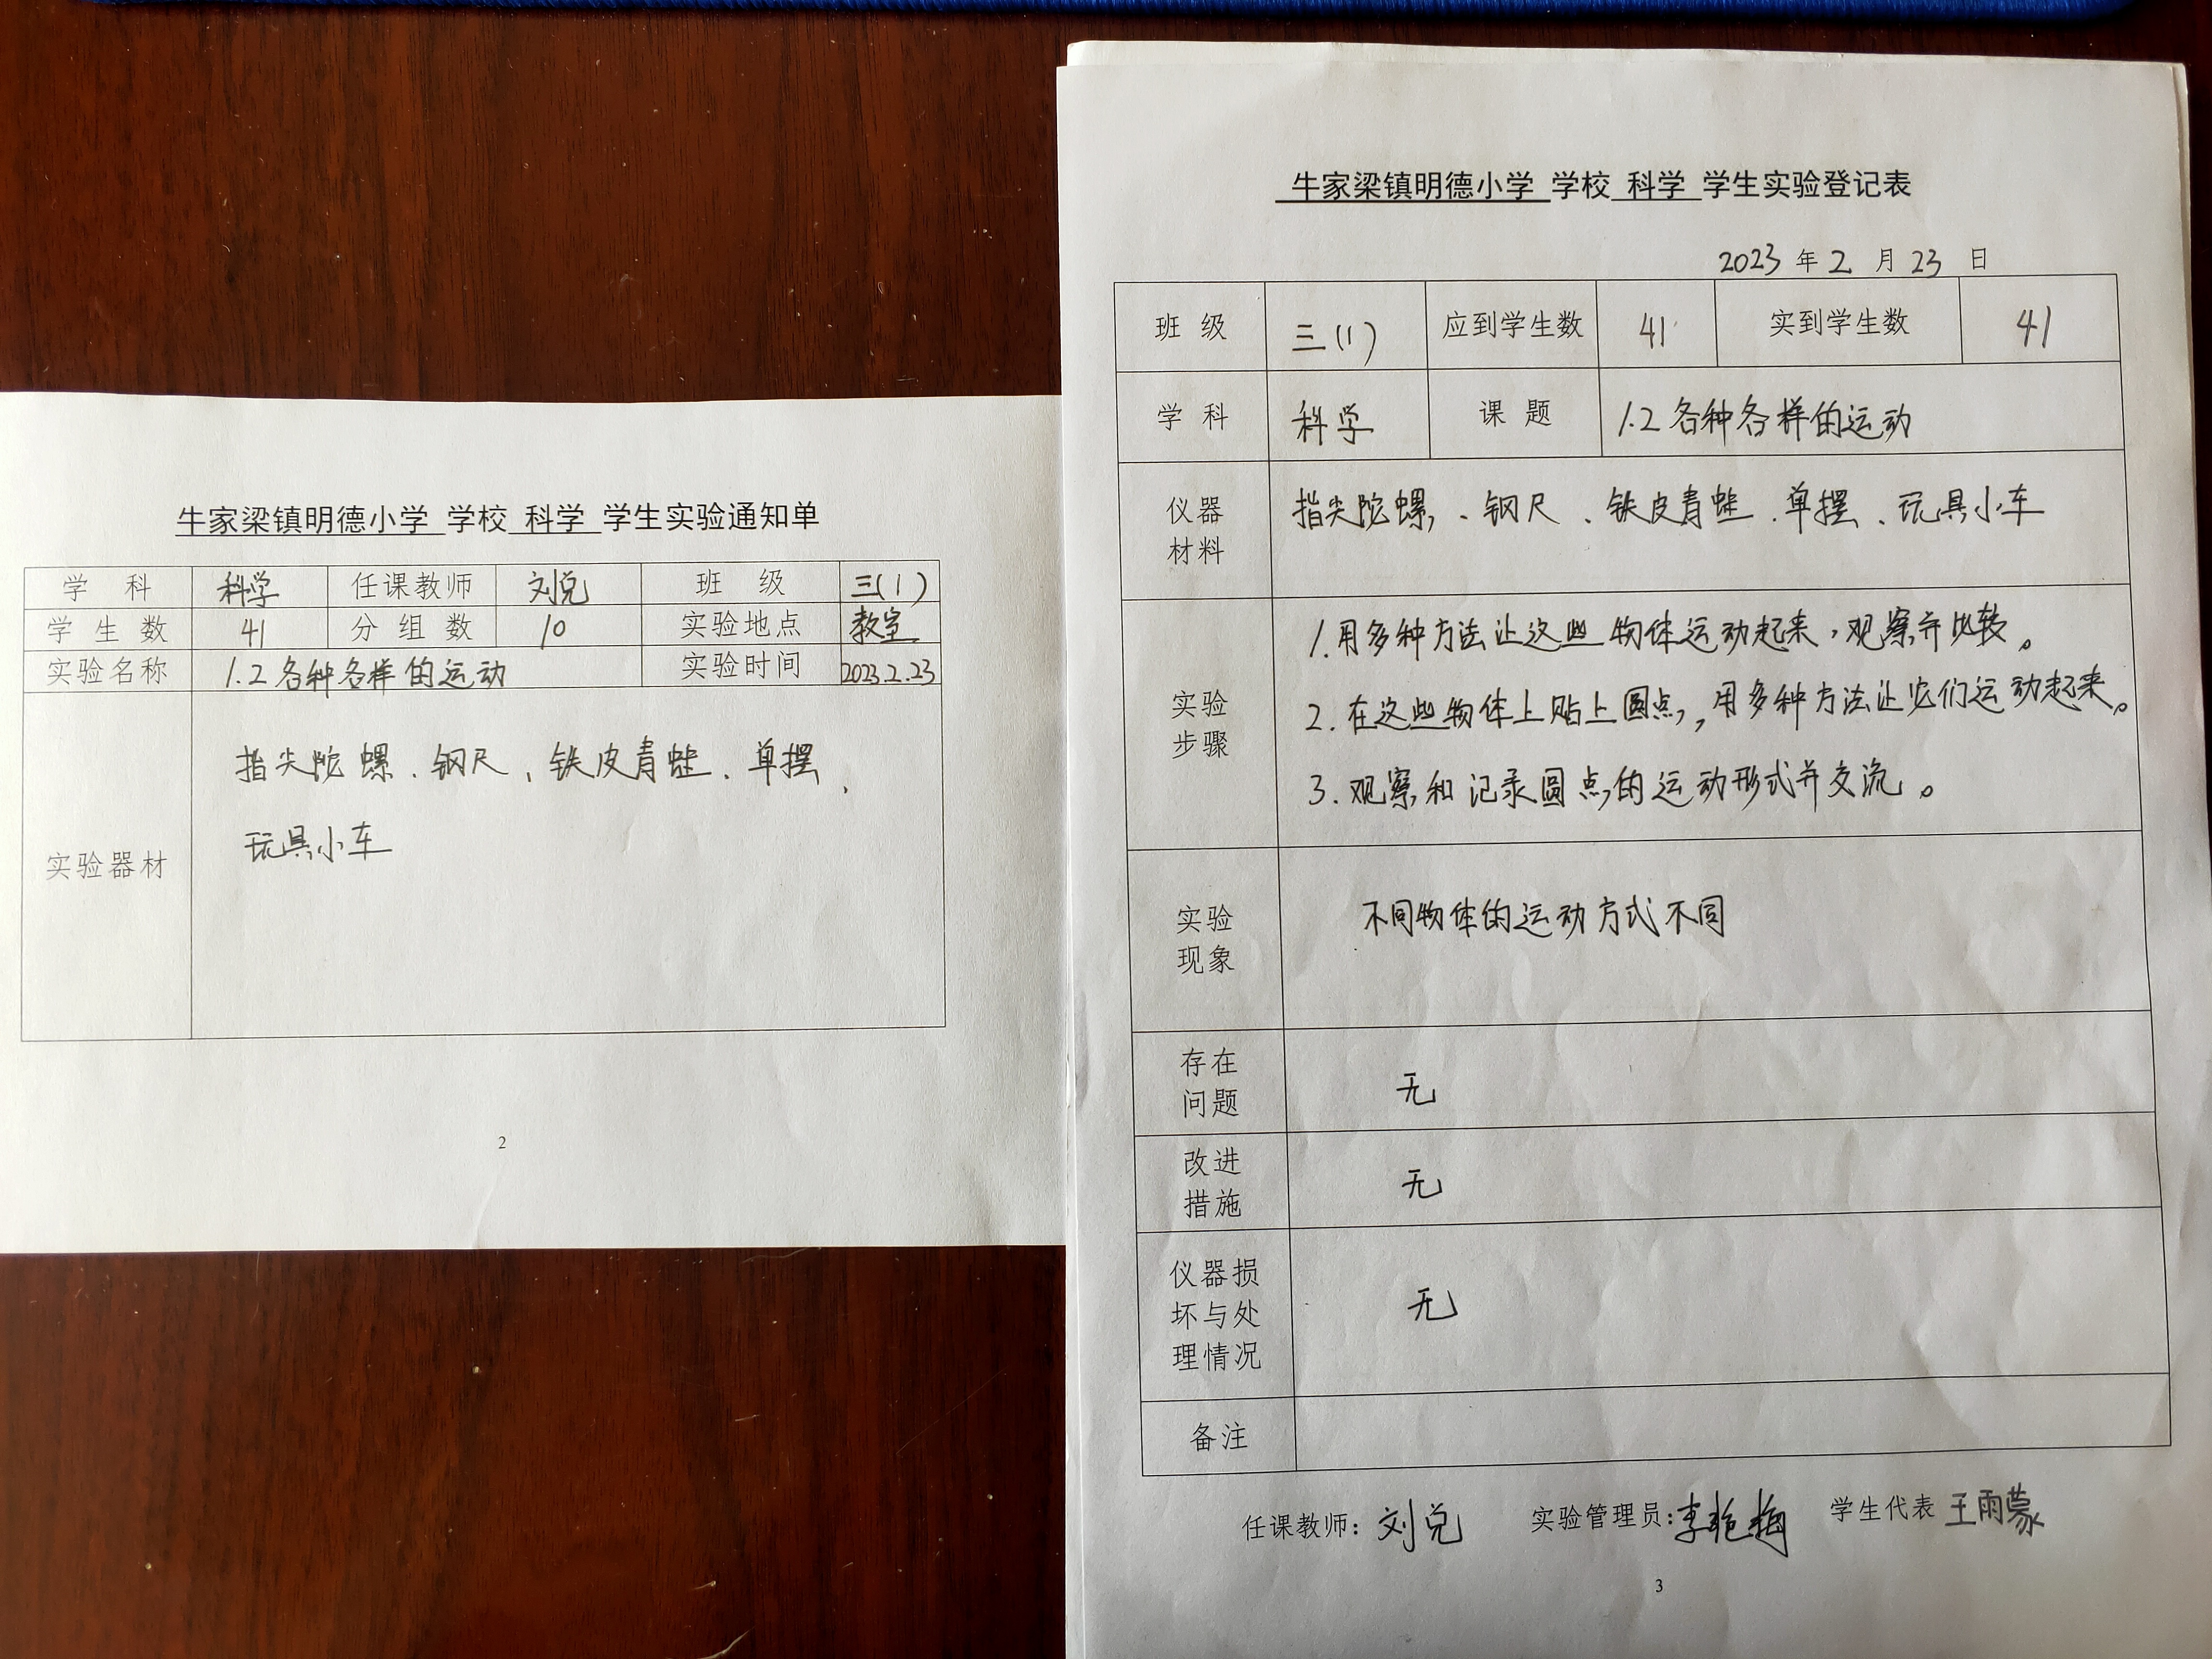 牛家梁镇明德小学 学校 科学 学生实验通知单
学 科 科学 任课教师 刘兑 班 级 三(1)
学 生 数 41 分 组 数 10 实验地点 教室
实验名称 1.2 各种各样的运动 实验时间 2023.2.23
指尖陀螺、钢尺、铁皮青蛙、单摆、
玩具小车
实验器材
2
牛家梁镇明德小学 学校 科学 学生实验登记表
2023 年 2 月 23 日
班 级 三(1) 应到学生数 41 实到学生数 41
学 科 科学 课 题 1.2 各种各样的运动
仪器
材料
指尖陀螺、钢尺、铁皮青蛙、单摆、玩具小车
实验
步骤
1.用多种方法让这些物体运动起来,观察并比较。
2.在这些物体上贴上圆点,用多种方法让它们运动起来。
3.观察和记录圆点的运动形式并交流。
实验
现象
不同物体的运动方式不同
存在
问题
无
改进
措施
无
仪器损
坏与处
理情况
无
备注
任课教师: 刘兑 实验管理员: 李艳梅 学生代表 王雨蒙
3